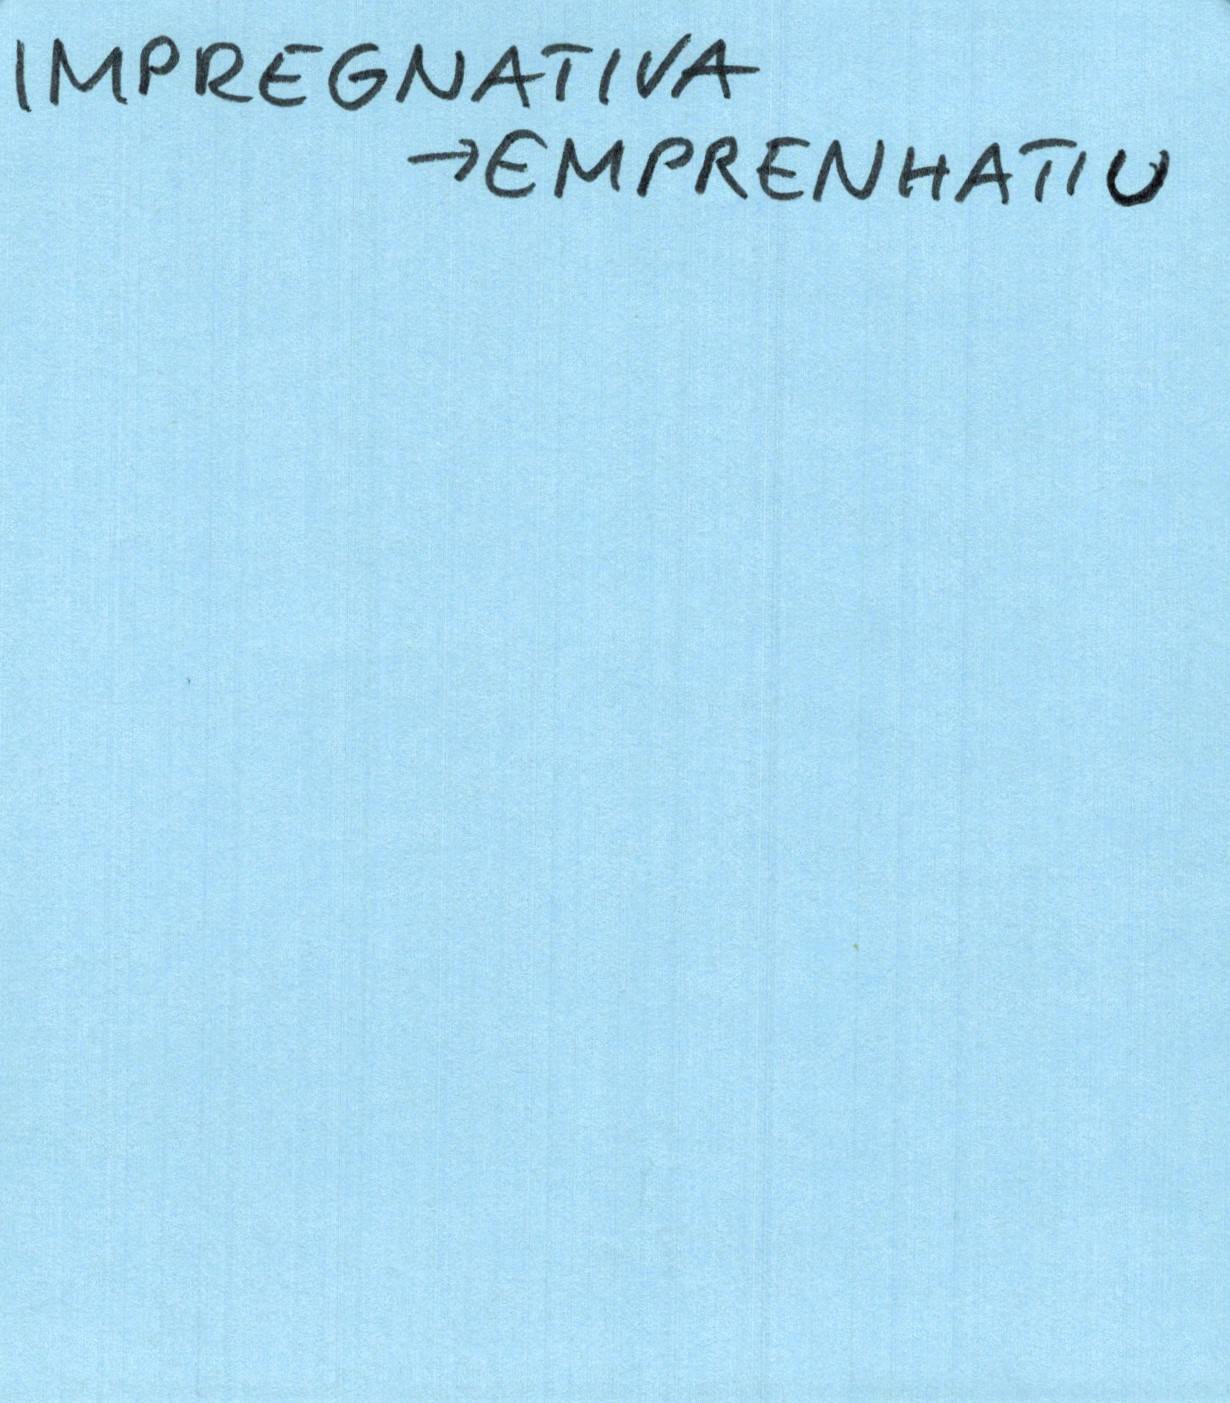 IMPREGNATIVA
→EMPRENHATIU